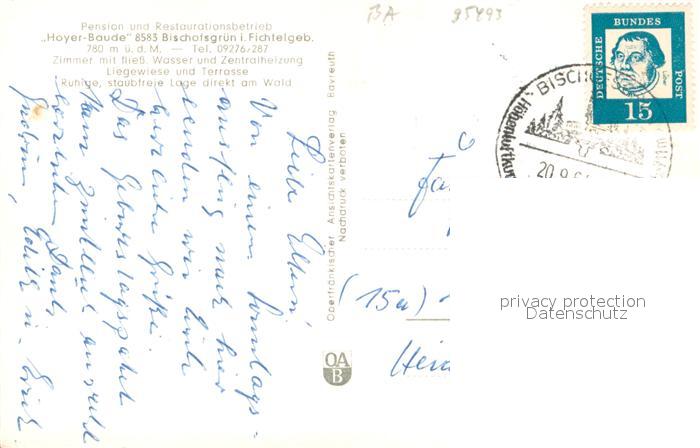 Pension und Restaurationsbetrieb
„Hoyer-Baude" 8583 Bischofsgrün i. Fichtelgeb.
780 m ü. d. M. — Tel. 09276/287
Zimmer mit fließ. Wasser und Zentralheizung
Liegewiese und Terrasse
Ruhige, staubfreie Lage direkt am Wald
BA 95493
DEUTSCHE
BUNDES
POST
15
BISCHOFS
Höhenluftkur
20.9.6
Liebe Eltern!
Von einem Sonntags-
ausflug nach hier
senden wir Euch
herzliche Grüße.
Das Geburtstagspaket
kam pünktlich an
herzlichen Dank
Oberfränkischer Ansichtskartenverlag Bayreuth
Nachdruck verboten
OA
B
Fa
(15a)
Heid
privacy protection
Datenschutz